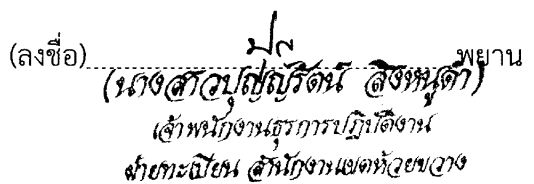 (ลงชื่อ) พยาน
(นางสาวปุญญ์รัตน์ สิงหนูดำ)
เจ้าพนักงานธุรการปฏิบัติงาน
ฝ่ายทะเบียน สำนักงานเขตห้วยขวาง